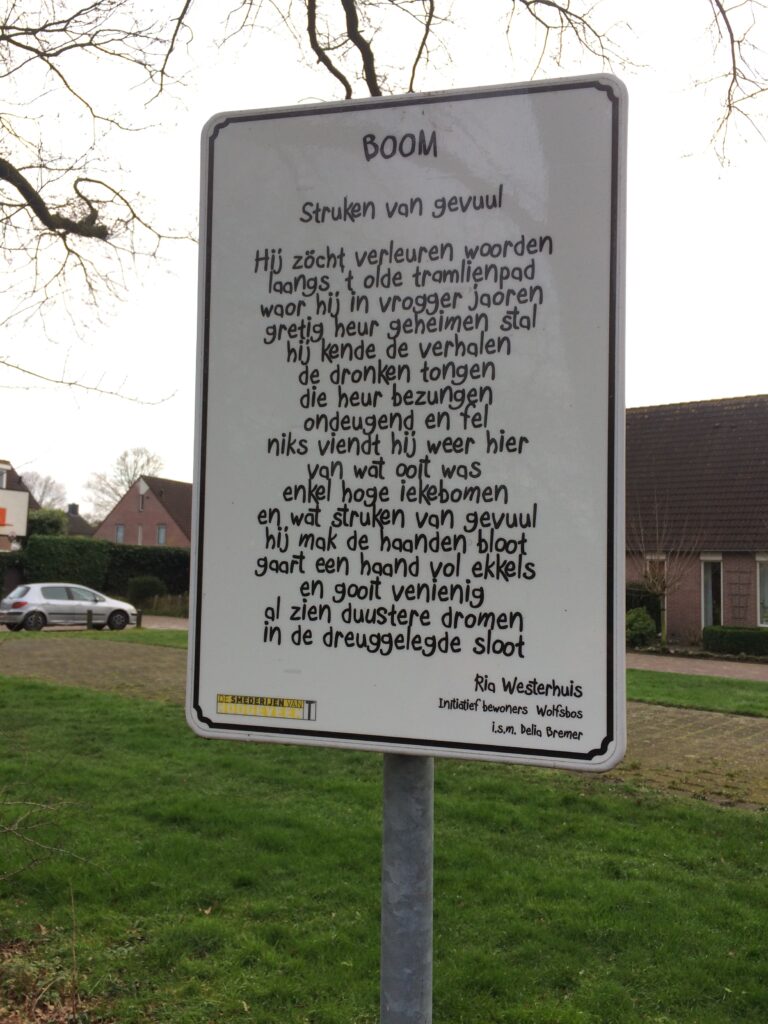 BOOM
Struken van gevuul
Hij zöcht verleuren woorden
laangs 't olde tramlienpad
waor hij in vrogger jaoren
gretig heur geheimen stal
hij kende de verhalen
de dronken tongen
die heur bezungen
ondeugend en fel
niks viendt hij weer hier
van wat ooit was
enkel hoge iekebomen
en wat struken van gevuul
hij mak de haanden bloot
gaart een haand vol ekkels
en gooit venienig
al zien duustere dromen
in de dreuggelegde sloot
Ria Westerhuis
Initiatief bewoners Wolfsbos
i.s.m. Delia Bremer
DE SMEDERIJEN VAN